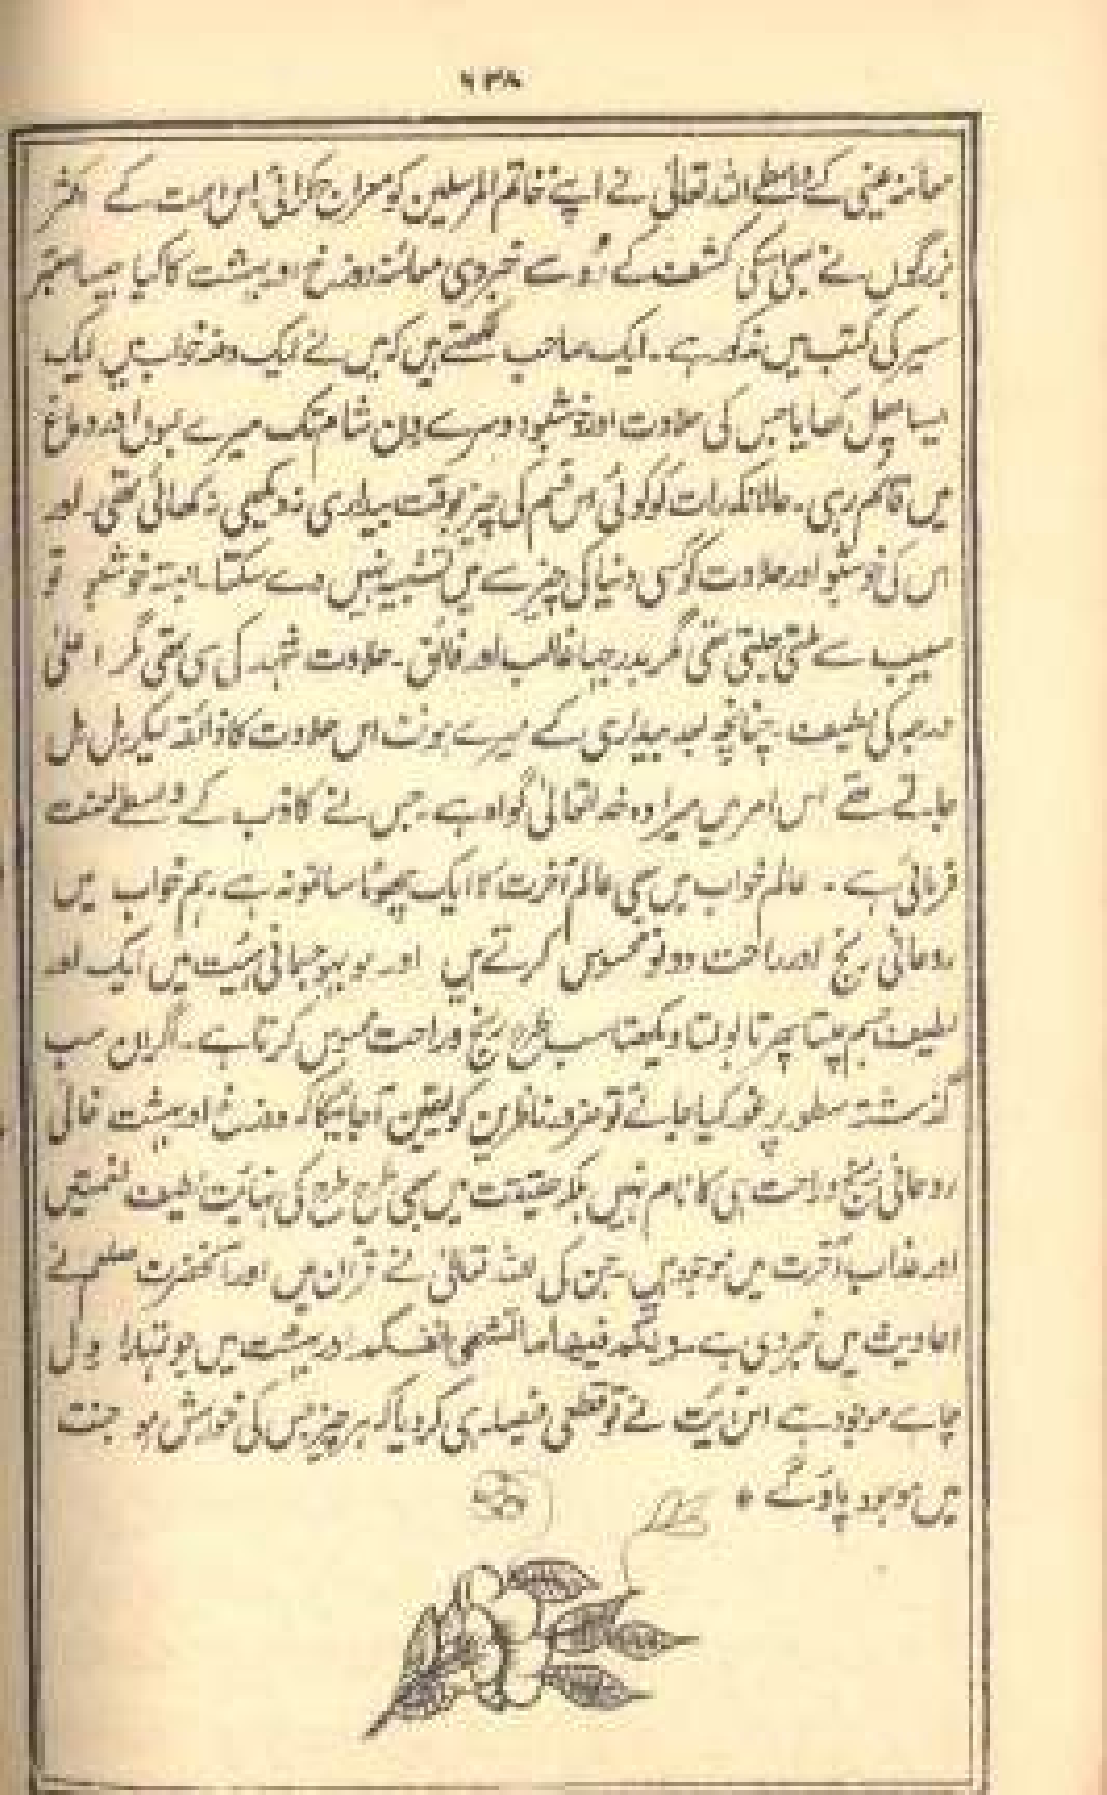 ۶۳۸
معائنہ عینی کے واسطے اللہ تعالیٰ نے اپنے خاتم المرسلین کو معراج کرائی اس امت کے اکثر
بزرگوں نے بھی کشف کے رُو سے خبر دی معائنہ دوزخ اور بہشت کا کیا جیسا معتبر
سیر کی کتب میں مذکور ہے۔ ایک صاحب لکھتے ہیں کہ میں نے ایک دفعہ خواب میں ایک
ایسا پھل کھایا جس کی حلاوت اور خوشبو دوسرے دن شام تک میرے لبوں اور دماغ
میں قائم رہی۔ حالانکہ رات کو کوئی اس قسم کی چیز بوقت بیداری نہ دیکھی نہ کھائی تھی۔ اور
اس کی خوشبو اور حلاوت کو کسی دنیا کی چیز سے میں تشبیہ نہیں دے سکتا۔ البتہ خوشبو تو
سیب سے ملتی جلتی تھی مگر بدرجہا غالب اور فائق۔ حلاوت شہد کی سی تھی مگر اعلیٰ
درجہ کی لطیف۔ چنانچہ بعد بیداری کے میرے ہونٹ اس حلاوت کا ذائقہ لیکر مل مل
جاتے تھے اس امر میں میرا وہ خدا تعالیٰ گواہ ہے۔ جس نے کاذب کے واسطے لعنت
فرمائی ہے۔ عالم خواب میں بھی عالم آخرت کا ایک چھوٹا سا نمونہ ہے۔ ہم خواب میں
روحانی رنج اور راحت دونو محسوس کرتے ہیں اور ہو بہو جسمانی ہیئت میں ایک اور
لطیف جسم چلتا پھرتا بولتا دیکھتا سب طرح رنج و راحت محسوس کرتا ہے۔ اگر ان سب
گذشتہ سطور پر غور کیا جائے تو ضرور ناظرین کو یقین آجائیگا کہ دوزخ اور بہشت خالی
روحانی رنج و راحت ہی کا نام نہیں بلکہ حقیقت میں بھی طرح طرح کی نہایت لطیف نعمتیں
اور عذاب آخرت میں موجود ہیں۔ جن کی اللہ تعالیٰ نے قرآن میں اور آنحضرت صلعم نے
احادیث میں خبر دی ہے۔ ولکم فیھا ما تشتھی انفسکم اور بہشت میں جو تمہارا دل
چاہے موجود ہے اس آیت نے تو قطعی فیصلہ ہی کر دیا کہ ہر چیز جس کی خواہش ہو جنت
میں موجود پاؤ گے *